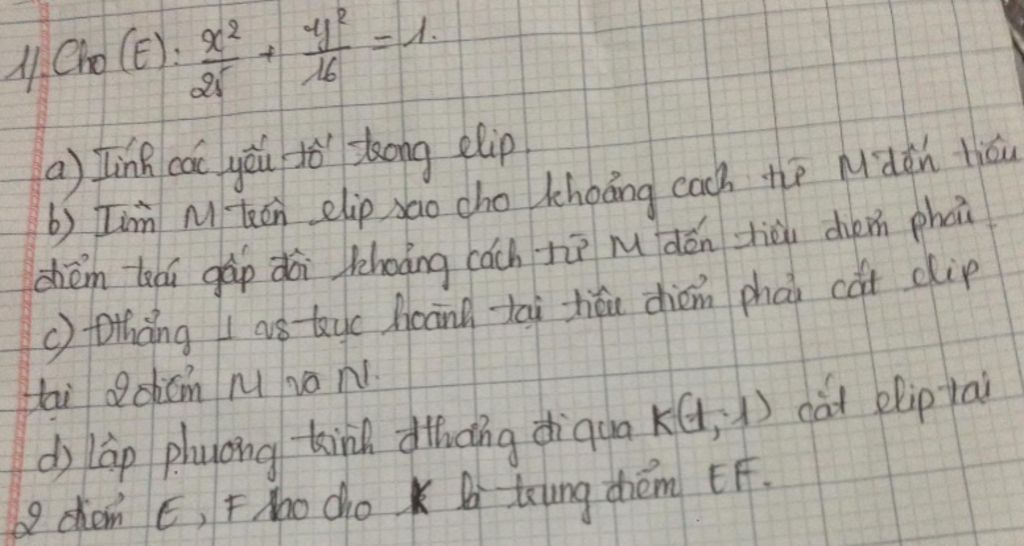 1) Cho (E): x²/25 + y²/16 = 1.
a) Tính các yếu tố trong elip.
b) Tìm M trên elip sao cho khoảng cách từ M đến tiêu
điểm trái gấp đôi khoảng cách từ M đến tiêu điểm phải.
c) Đthẳng ⊥ vs trục hoành tại tiêu điểm phải cắt elip
tại 2 điểm M và N.
d) lập phương trình đthẳng đi qua K(1;1) cắt elip tại
2 điểm E, F sao cho K là trung điểm EF.